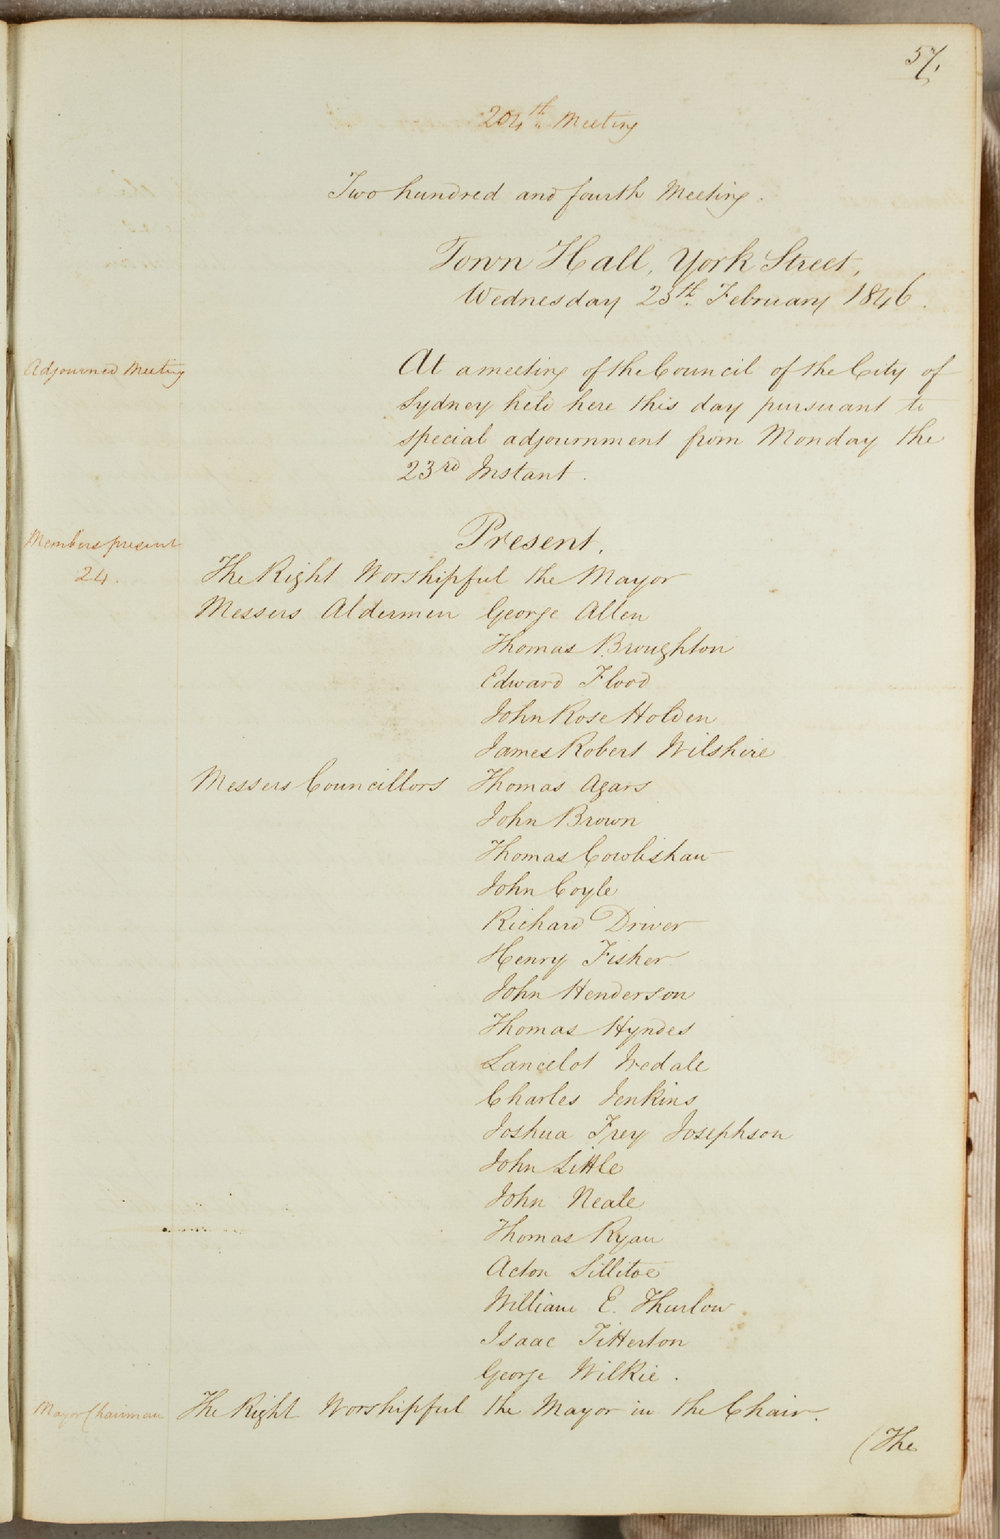 57.
204th Meeting
Two hundred and fourth Meeting.
Town Hall, York Street,
Wednesday 25th February 1846.
Adjourned Meeting
At a meeting of the Council of the City of
Sydney held here this day pursuant to
special adjournment from Monday the
23rd Instant.
Members present
24.
Present,
The Right Worshipful the Mayor
Messers Aldermen George Allen
Thomas Broughton
Edward Flood
John Rose Holden
James Robert Wilshire
Messers Councillors Thomas Agars
John Brown
Thomas Cowlishaw
John Coyle
Richard Driver
Henry Fisher
John Henderson
Thomas Hyndes
Lancelot Iredale
Charles Jenkins
Joshua Frey Josephson
John Little
John Neale
Thomas Ryan
Acton Sillitoe
William E. Thurlow
Isaac Titterton
George Wilkie.
Mayor Chairman
The Right Worshipful the Mayor in the Chair.
(The